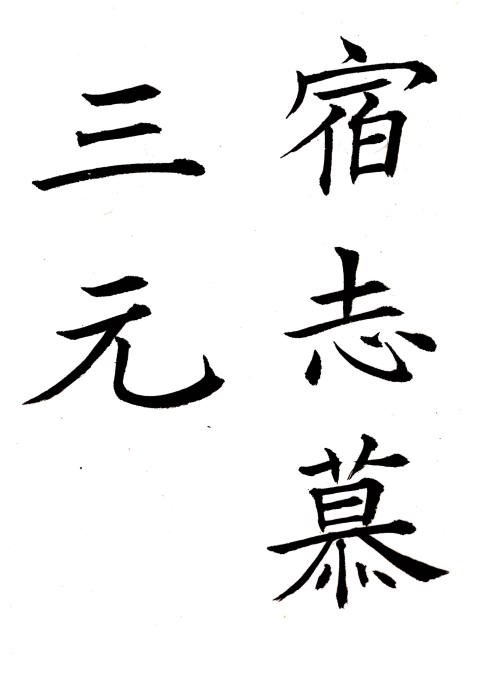 宿志慕
三元